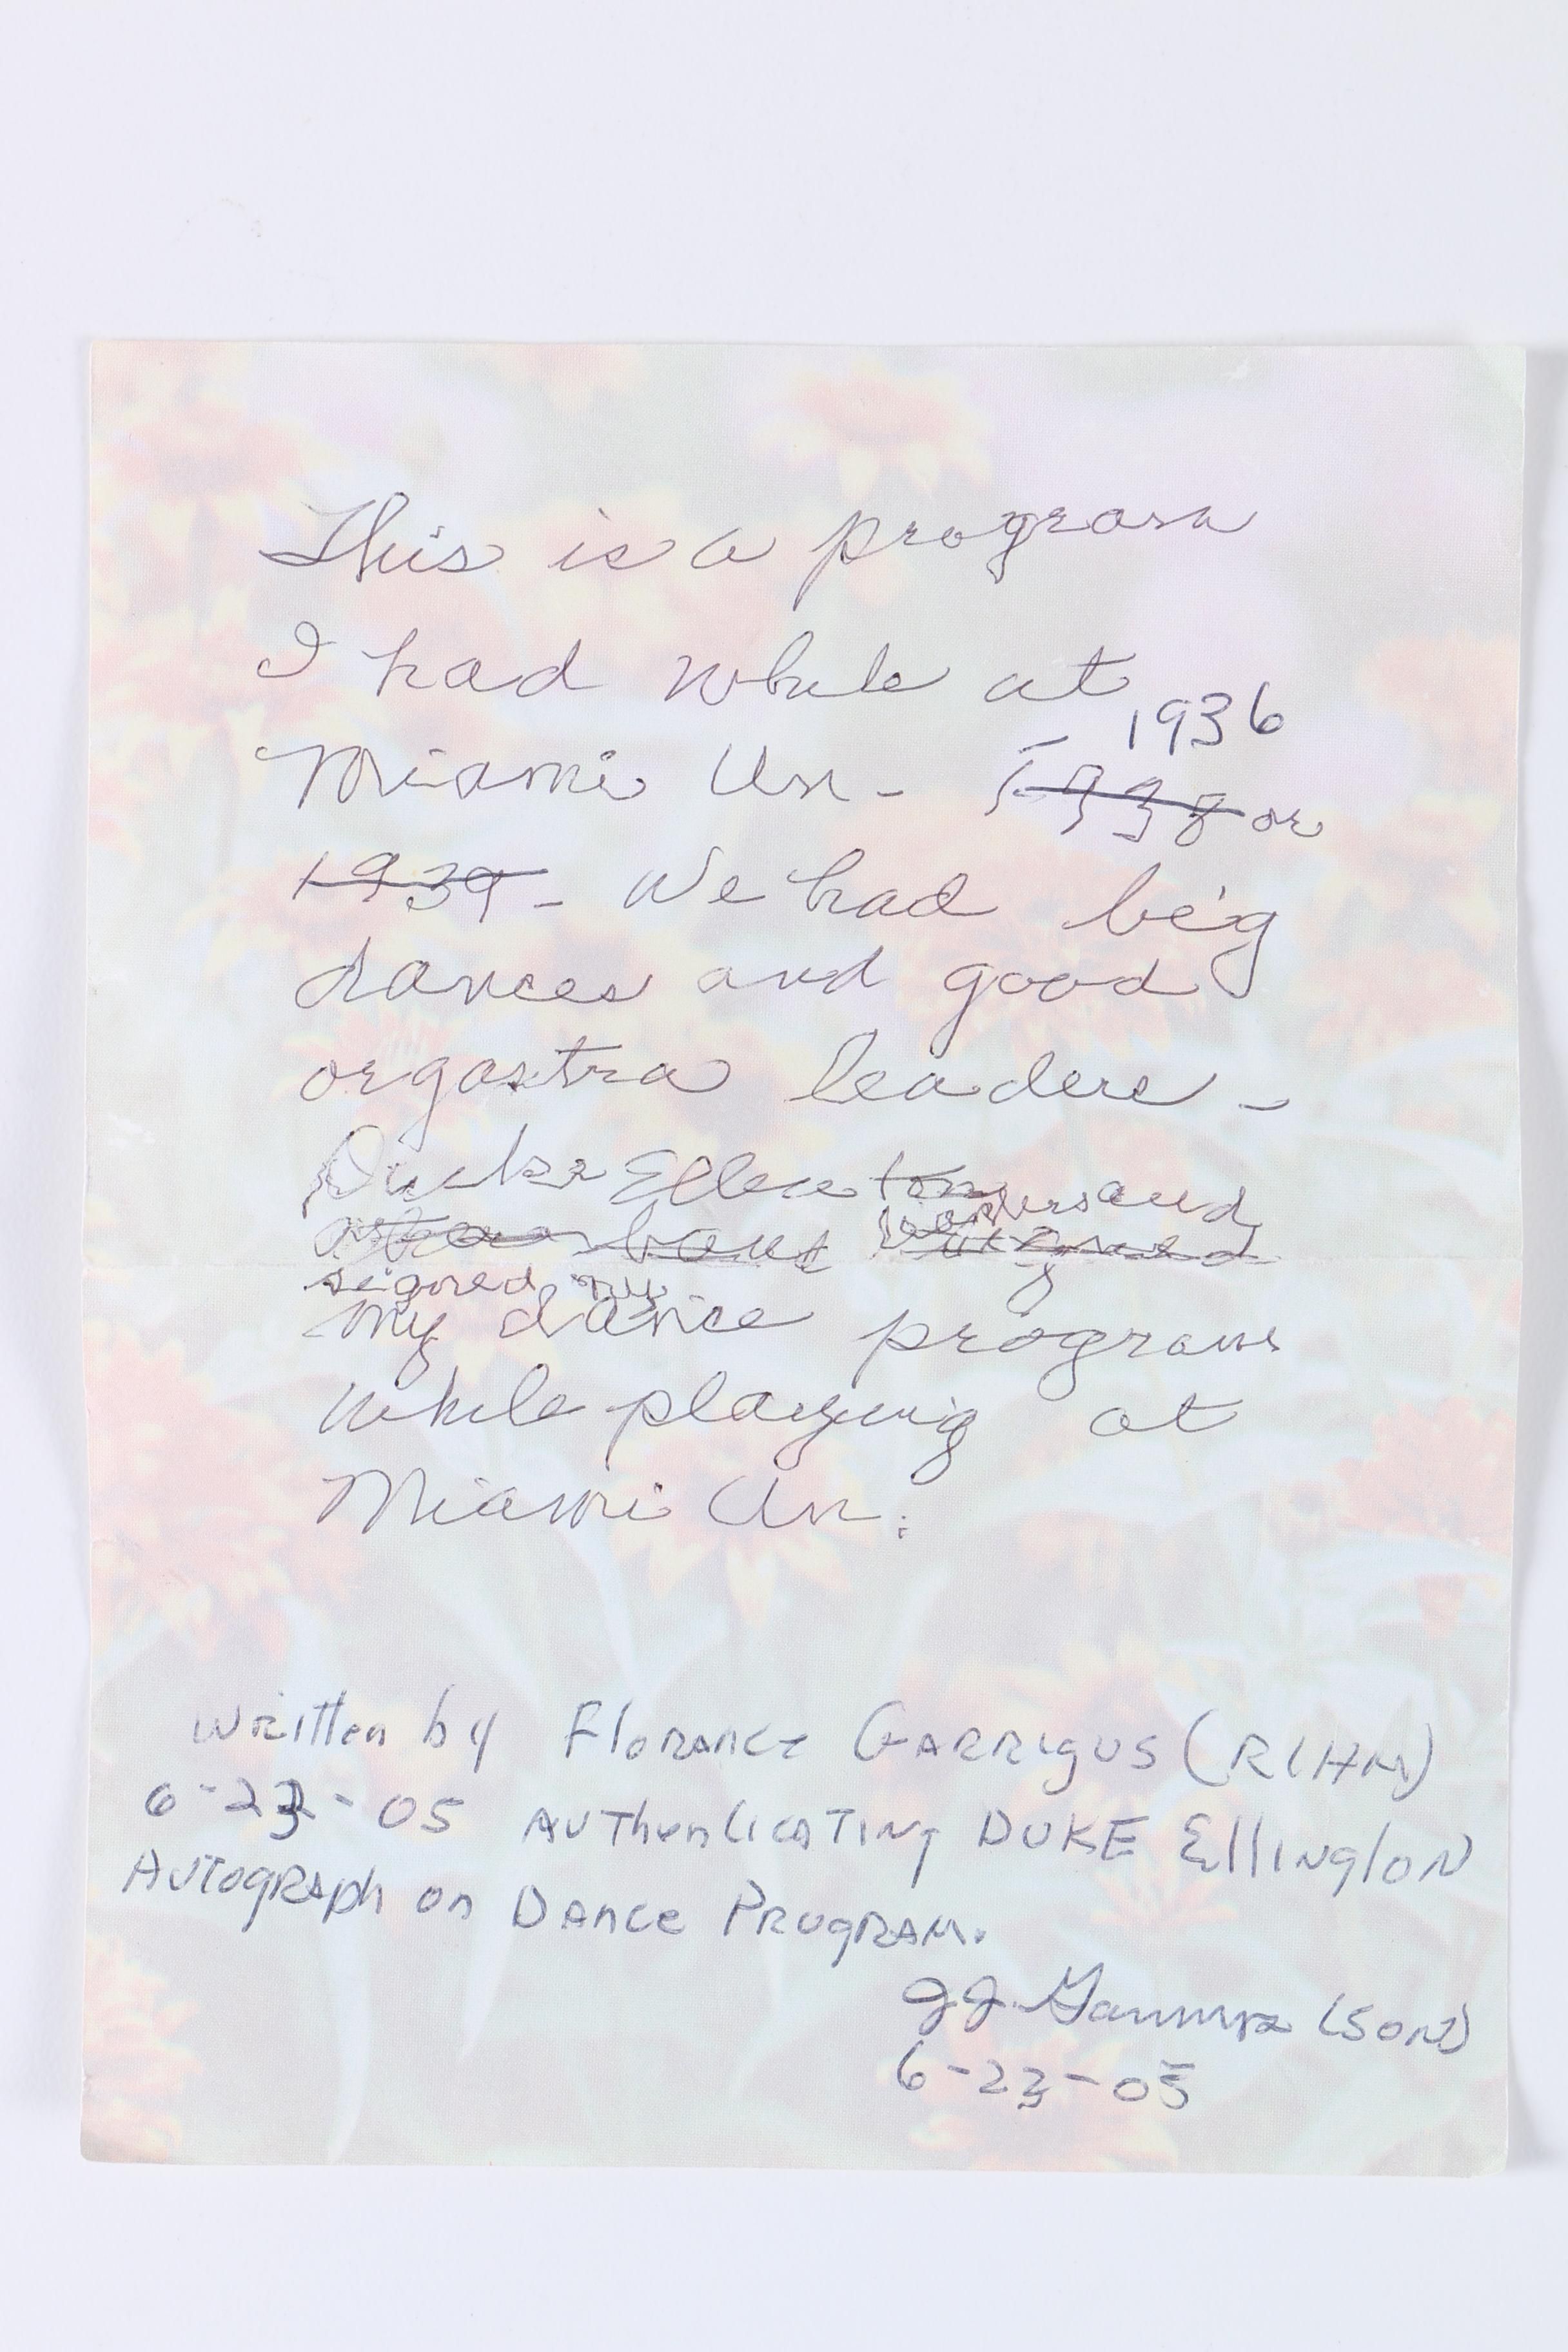 This is a program
I had while at
1936
Miami Un - 1938 or
1939 - We had big
dances and good
orgastra leaders -
Duke Ellenton
and
signed my
my dance program
while playing at
Miami Un.
written by Florance Garrigus (Rihm)
6-23-05 Authenticating Duke Ellington
Autograph on Dance Program.
JJ Garrigus (son)
6-23-05